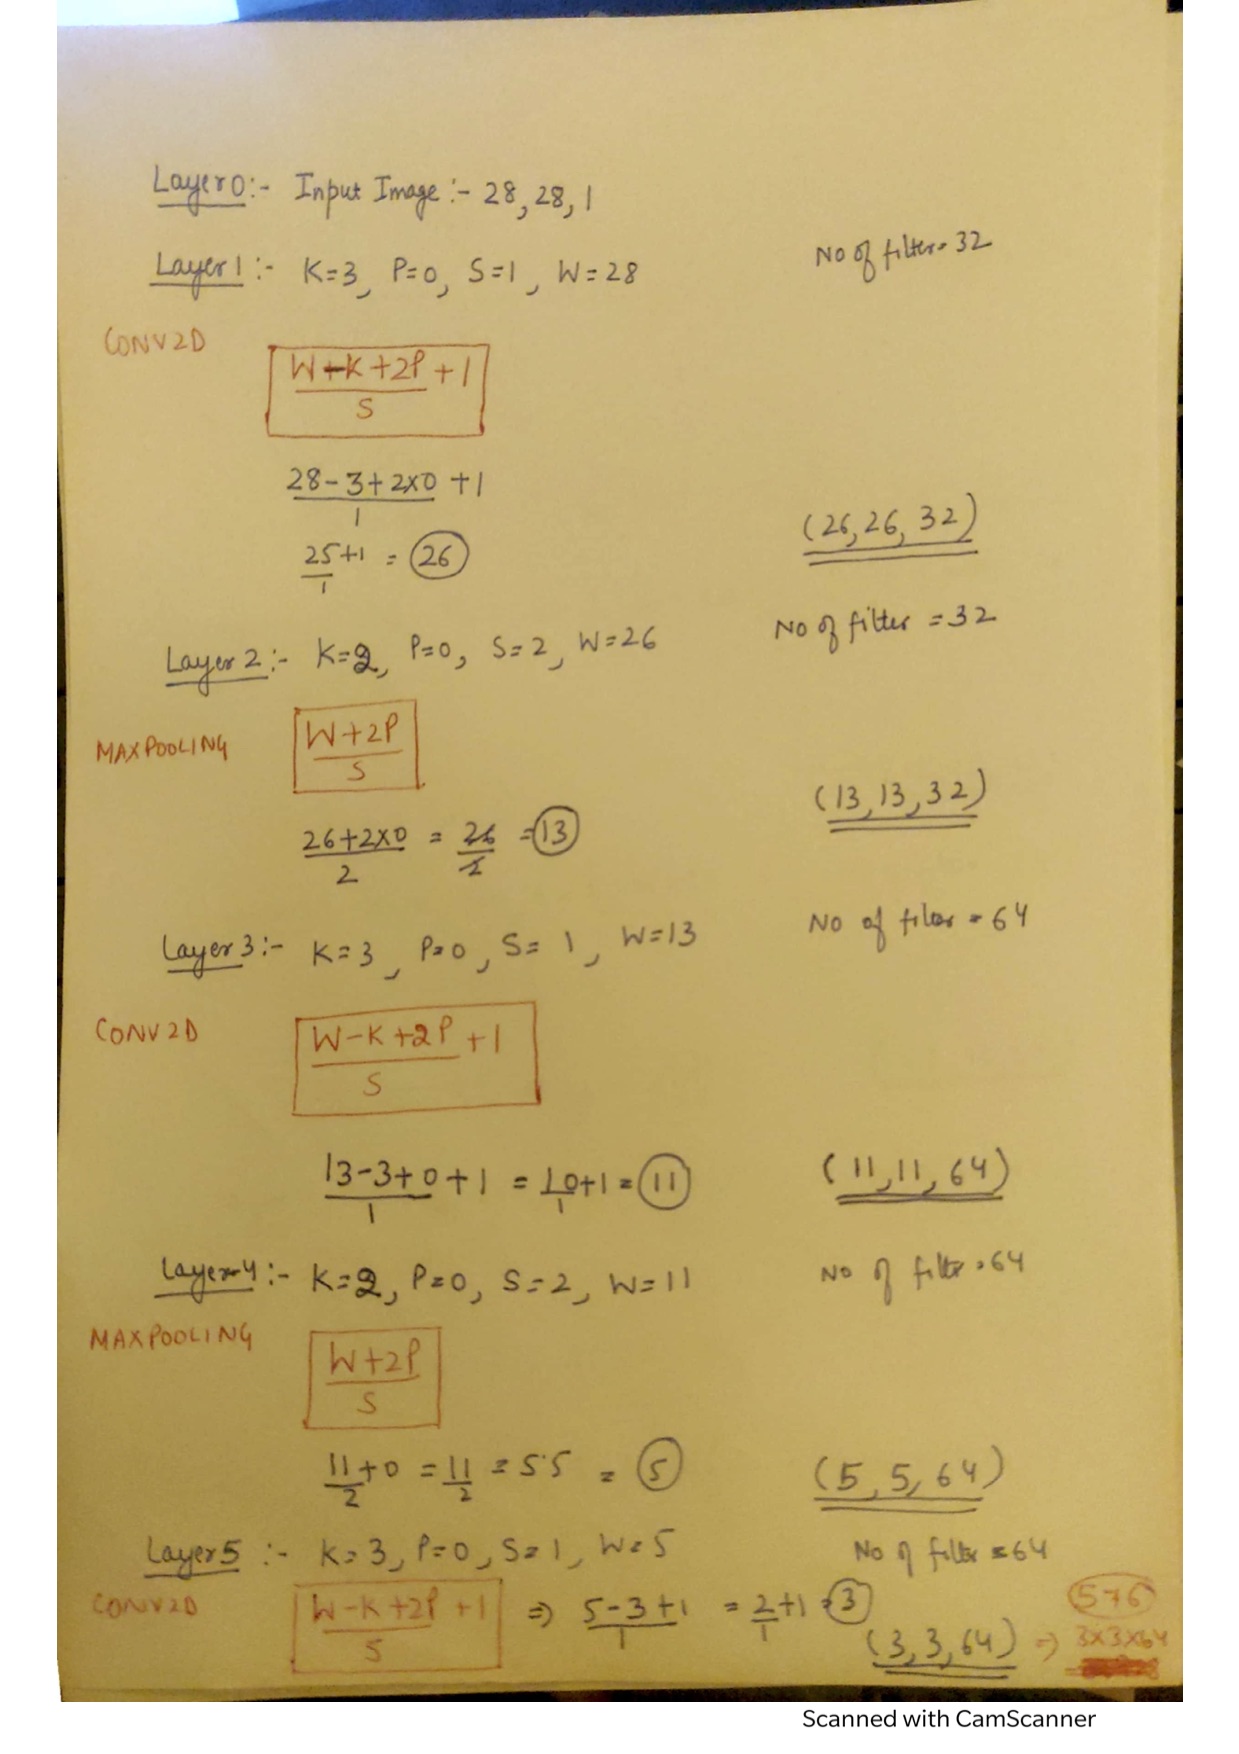 Layer 0:- Input Image:- 28, 28, 1
Layer 1:- K=3, P=0, S=1, W=28
No of filter= 32
CONV2D
W-K+2P +1
S
28-3+2x0 +1
1
25+1 = 26
1
(26,26,32)
Layer 2:- K=2, P=0, S=2, W=26
No of filter =32
MAXPOOLING
W+2P
S
26+2x0 = 26 =13
2 2
(13,13,32)
Layer 3:- K=3, P=0, S= 1, W=13
No of filter = 64
CONV2D
W-K+2P +1
S
13-3+0+1 = 10+1= 11
1 1
(11,11,64)
Layer-4:- K=2, P=0, S=2, W=11
No of filter =64
MAXPOOLING
W+2P
S
11+0 = 11 = 5.5 = 5
2 2
(5,5,64)
Layer 5 :- K=3, P=0, S=1, W=5
No of filter =64
CONV2D
W-K+2P +1 => 5-3+1 = 2+1 =3
S 1 1
576
(3,3,64) => 3x3x64
Scanned with CamScanner